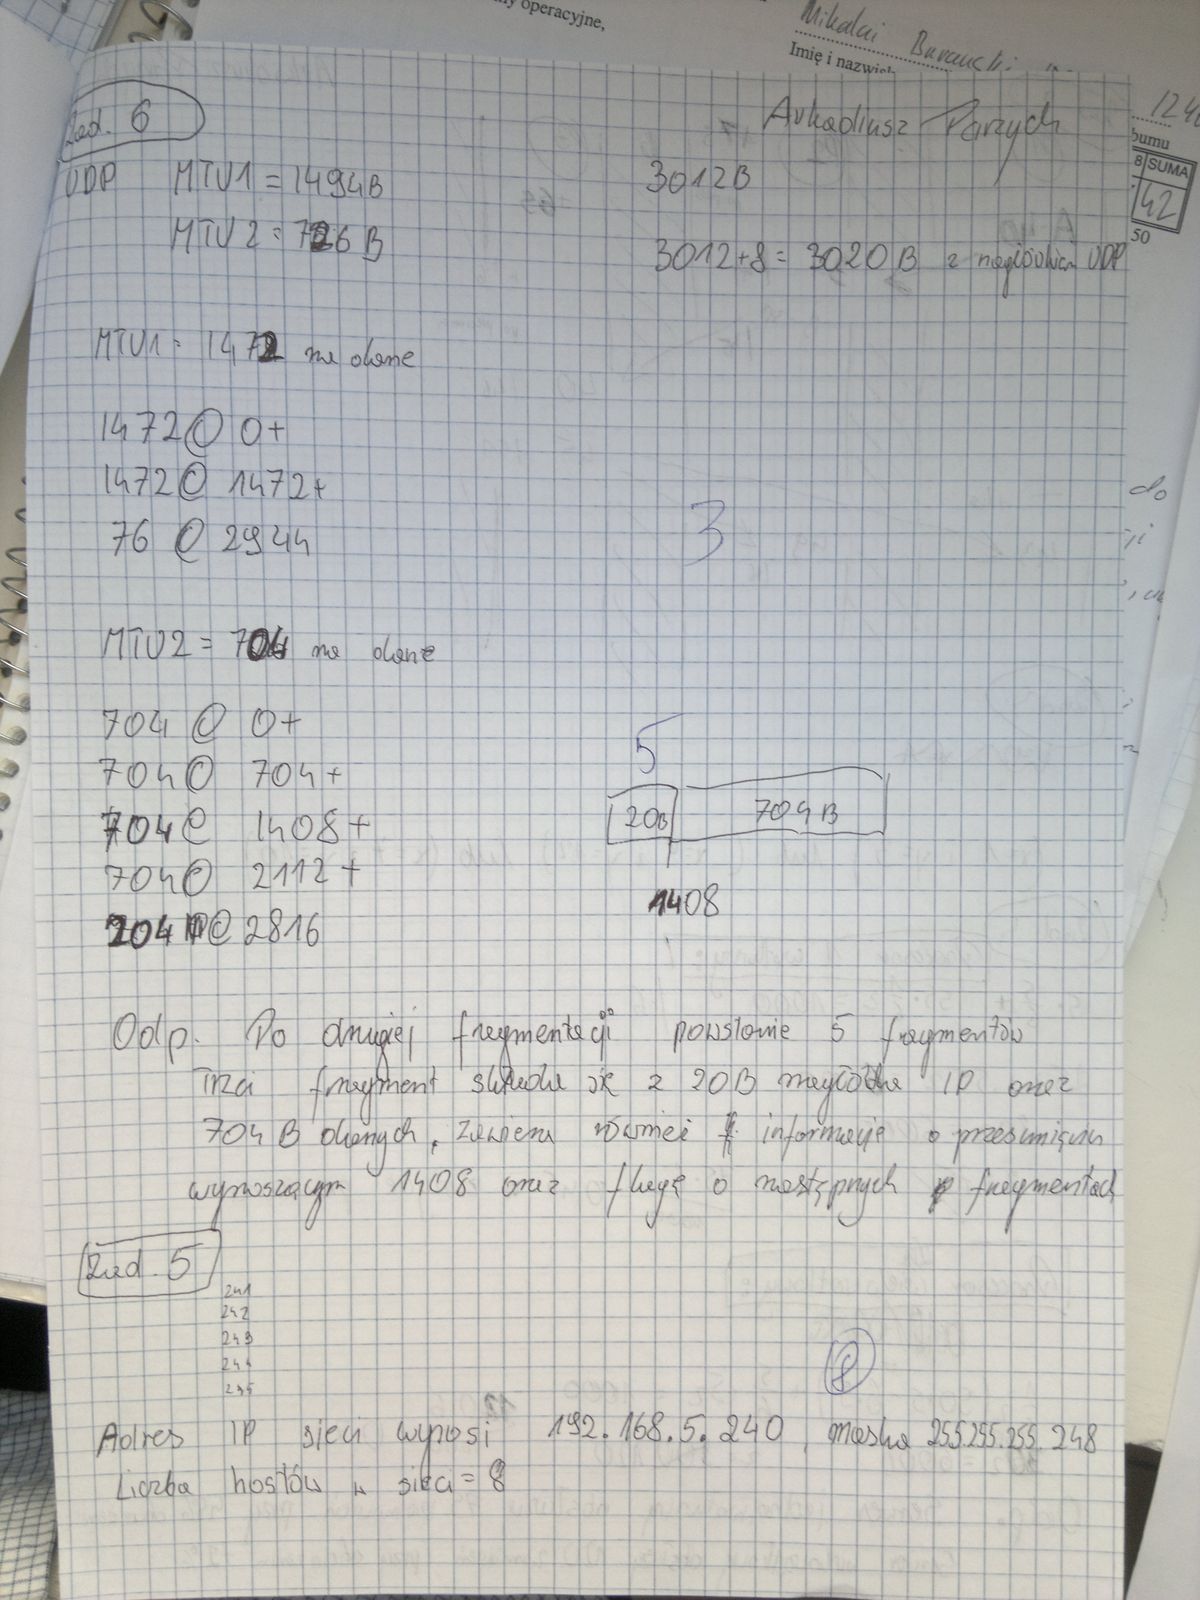 ny operacyjne,
Mikalai
Imię i nazwisk
124
bumu
8 SUMA
42
50
Zad. 6
Arkadiusz Parzych
UDP MTU1 = 1494B 3012B
MTU2 = 726 B
3012+8 = 3020 B z nagłówkiem UDP
MTU1 = 1472 na dane
1472@ 0+
1472@ 1472+
76 @ 2944
3
MTU2 = 704 na dane
704 @ 0+
704@ 704+
704@ 1408+
704@ 2112+
204 @ 2816
5
20B 704B
1408
Odp. Po drugiej fragmentacji powstanie 5 fragmentów
Trzci fragment składa się z 20B nagłówka IP oraz
704 B danych, zawiera również informację o przesunięciu
wynoszącym 1408 oraz flagę o następnych fragmentach
Zad. 5
241
242
243
244
245
8
Adres IP sieci wynosi 192.168.5.240, maska 255.255.255.248
Liczba hostów w sieci = 8
do